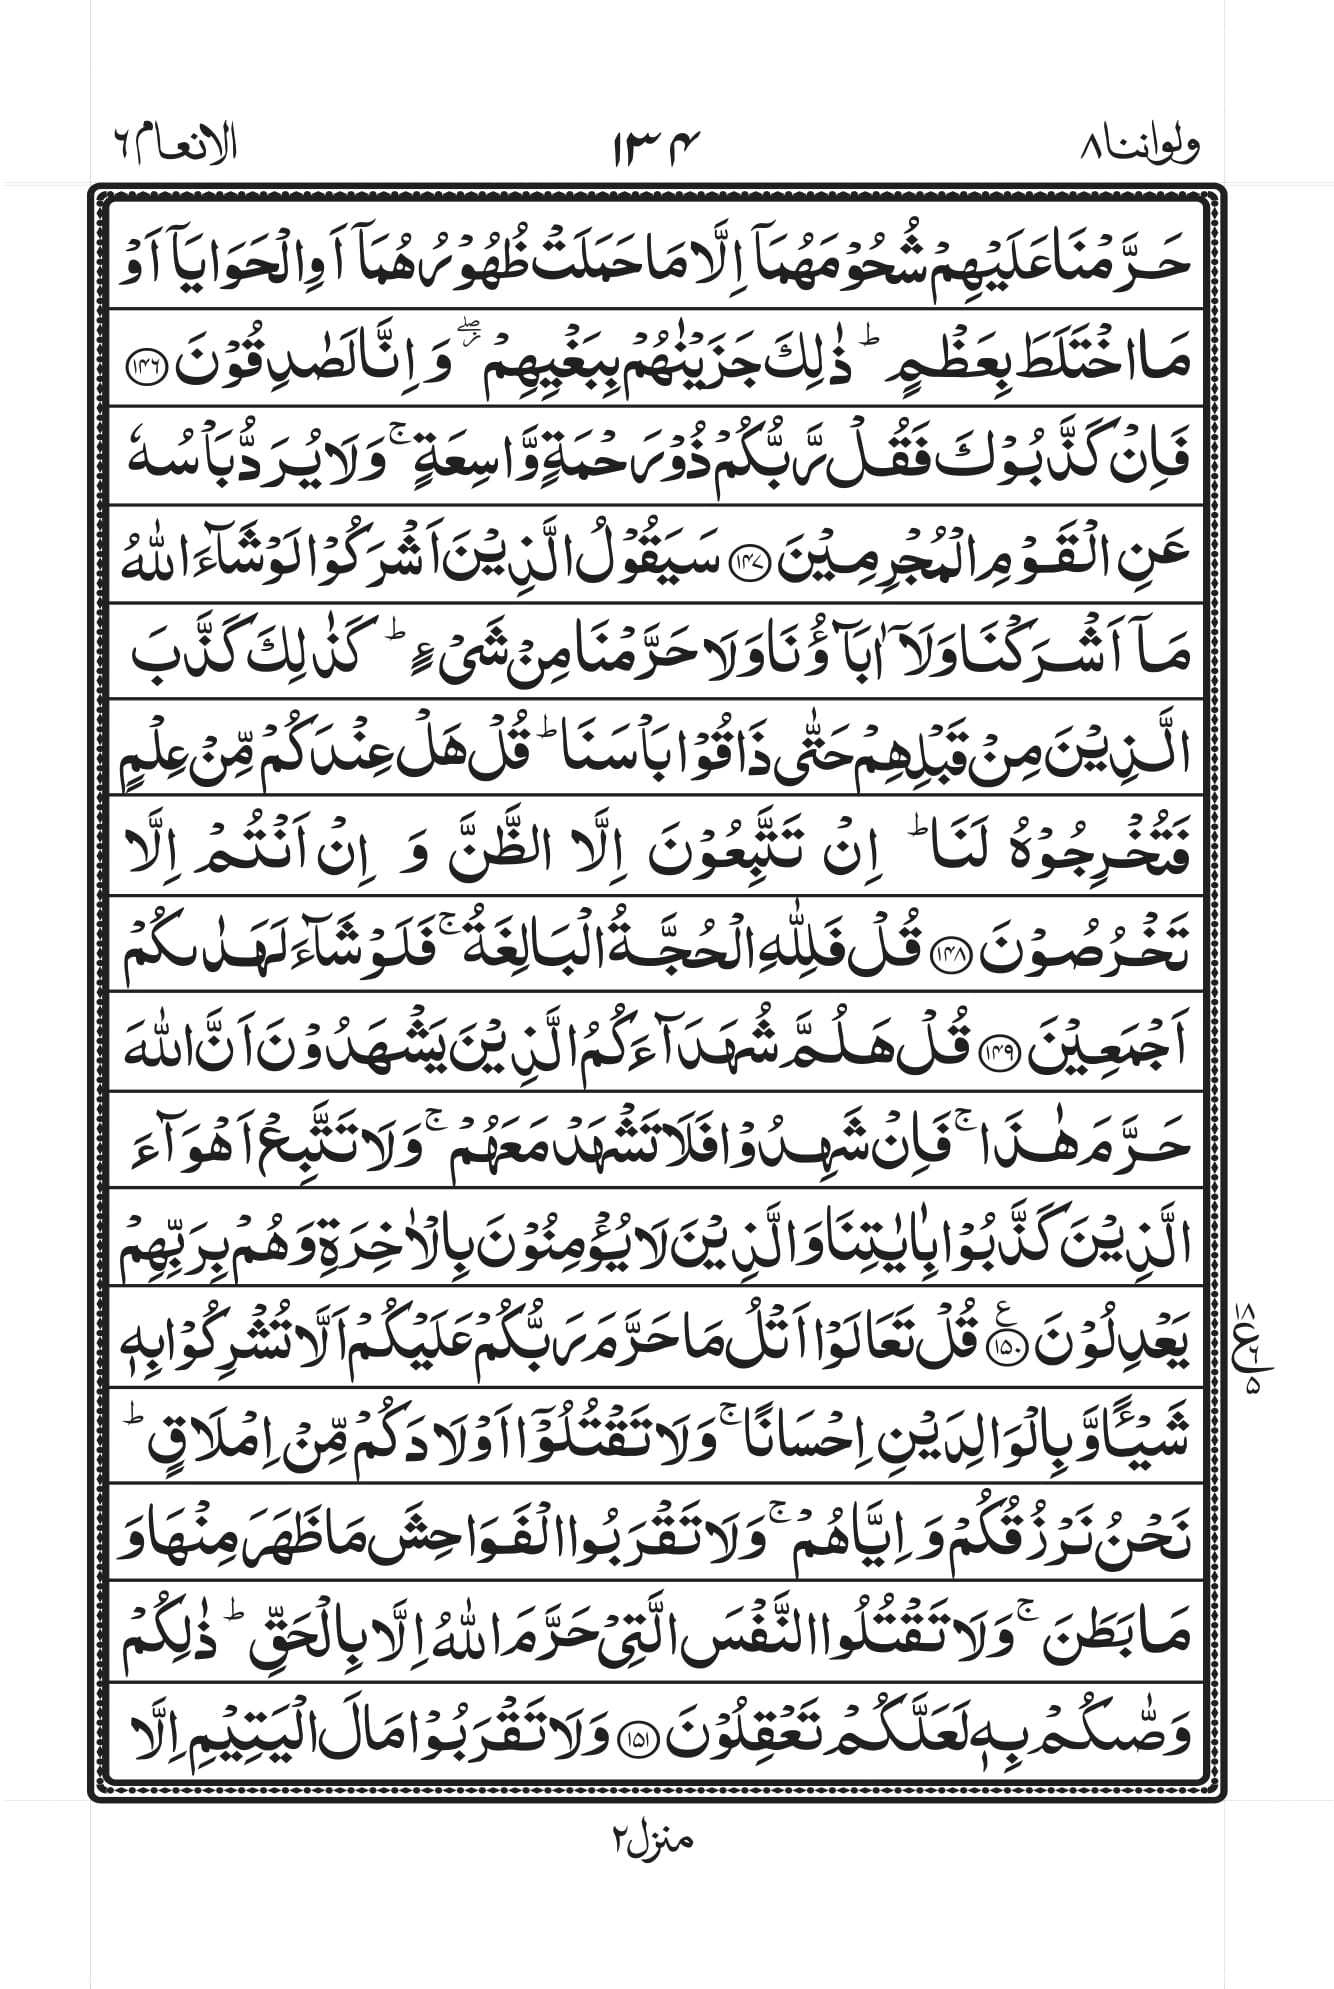 ولواننا ٨ ١٣۴ الانعام ٦
حَرَّمْنَا عَلَيْهِمْ شُحُوْمَهُمَاۤ اِلَّا مَا حَمَلَتْ ظُهُوْرُهُمَاۤ اَوِ الْحَوَايَاۤ اَوْ
مَا اخْتَلَطَ بِعَظْمٍ ؕ ذٰلِكَ جَزَيْنٰهُمْ بِبَغْيِهِمْ ۖؗ وَ اِنَّا لَصٰدِقُوْنَ ﴿۱۴۶﴾
فَاِنْ كَذَّبُوْكَ فَقُلْ رَّبُّكُمْ ذُوْ رَحْمَةٍ وَّاسِعَةٍ ۚ وَلَا يُرَدُّ بَاْسُهٗ
عَنِ الْقَوْمِ الْمُجْرِمِيْنَ ﴿۱۴۷﴾ سَيَقُوْلُ الَّذِيْنَ اَشْرَكُوْا لَوْ شَآءَ اللّٰهُ
مَاۤ اَشْرَكْنَا وَلَاۤ اٰبَآؤُنَا وَلَا حَرَّمْنَا مِنْ شَیْءٍ ؕ كَذٰلِكَ كَذَّبَ
الَّذِيْنَ مِنْ قَبْلِهِمْ حَتّٰى ذَاقُوْا بَاْسَنَا ؕ قُلْ هَلْ عِنْدَكُمْ مِّنْ عِلْمٍ
فَتُخْرِجُوْهُ لَنَا ؕ اِنْ تَتَّبِعُوْنَ اِلَّا الظَّنَّ وَ اِنْ اَنْتُمْ اِلَّا
تَخْرُصُوْنَ ﴿۱۴۸﴾ قُلْ فَلِلّٰهِ الْحُجَّةُ الْبَالِغَةُ ۚ فَلَوْ شَآءَ لَهَدٰىكُمْ
اَجْمَعِيْنَ ﴿۱۴۹﴾ قُلْ هَلُمَّ شُهَدَآءَكُمُ الَّذِيْنَ يَشْهَدُوْنَ اَنَّ اللّٰهَ
حَرَّمَ هٰذَا ۚ فَاِنْ شَهِدُوْا فَلَا تَشْهَدْ مَعَهُمْ ۚ وَلَا تَتَّبِعْ اَهْوَآءَ
الَّذِيْنَ كَذَّبُوْا بِاٰيٰتِنَا وَالَّذِيْنَ لَا يُؤْمِنُوْنَ بِالْاٰخِرَةِ وَهُمْ بِرَبِّهِمْ
يَعْدِلُوْنَ ﴿۱۵۰﴾ ع قُلْ تَعَالَوْا اَتْلُ مَا حَرَّمَ رَبُّكُمْ عَلَيْكُمْ اَلَّا تُشْرِكُوْا بِهٖ
۱۸ ع ٦ ۵
شَيْـًٔا وَّ بِالْوَالِدَيْنِ اِحْسَانًا ۚ وَلَا تَقْتُلُوْۤا اَوْلَادَكُمْ مِّنْ اِمْلَاقٍ ؕ
نَحْنُ نَرْزُقُكُمْ وَ اِيَّاهُمْ ۚ وَلَا تَقْرَبُوا الْفَوَاحِشَ مَا ظَهَرَ مِنْهَا وَ
مَا بَطَنَ ۚ وَلَا تَقْتُلُوا النَّفْسَ الَّتِیْ حَرَّمَ اللّٰهُ اِلَّا بِالْحَقِّ ؕ ذٰلِكُمْ
وَصّٰىكُمْ بِهٖ لَعَلَّكُمْ تَعْقِلُوْنَ ﴿۱۵۱﴾ وَلَا تَقْرَبُوْا مَالَ الْيَتِيْمِ اِلَّا
منزل ٢